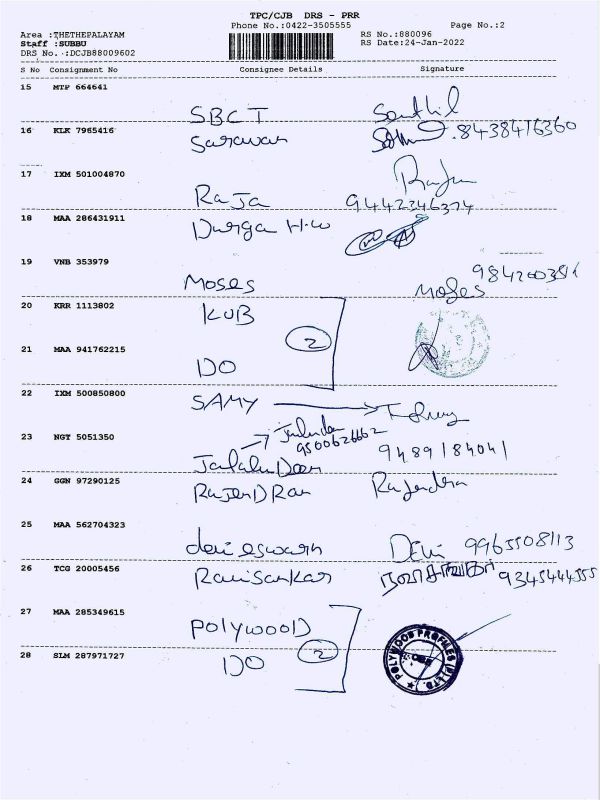 TPC/CJB DRS - PRR
Phone No.:0422-3505555 Page No.:2
Area :THETHEPALAYAM RS No.:880096
Staff :SUBBU RS Date:24-Jan-2022
DRS No.:DCJB88009602
S No Consignment No Consignee Details Signature
15 MTP 664641
SBCT Senthil
16 KLK 7965416 8438416360
Sarawan
17 IXM 501004870
Raja 9442346374
18 MAA 286431911
Durga H.W
19 VNB 353979
Moses Moses
20 KRR 1113802
KUB
2
21 MAA 941762215
DO
22 IXM 500850800
SAMY
23 NGT 5051350
9500626662
9489184041
24 GGN 97290125
RajenDRan Rajendra
25 MAA 562704323
Devieswarn Devi 9965508113
26 TCG 20005456
Ravisankar 9345444555
27 MAA 285349615
POLYWOOD
2
28 SLM 287971727
DO
POLYWOOD PROFILES (P) LTD.